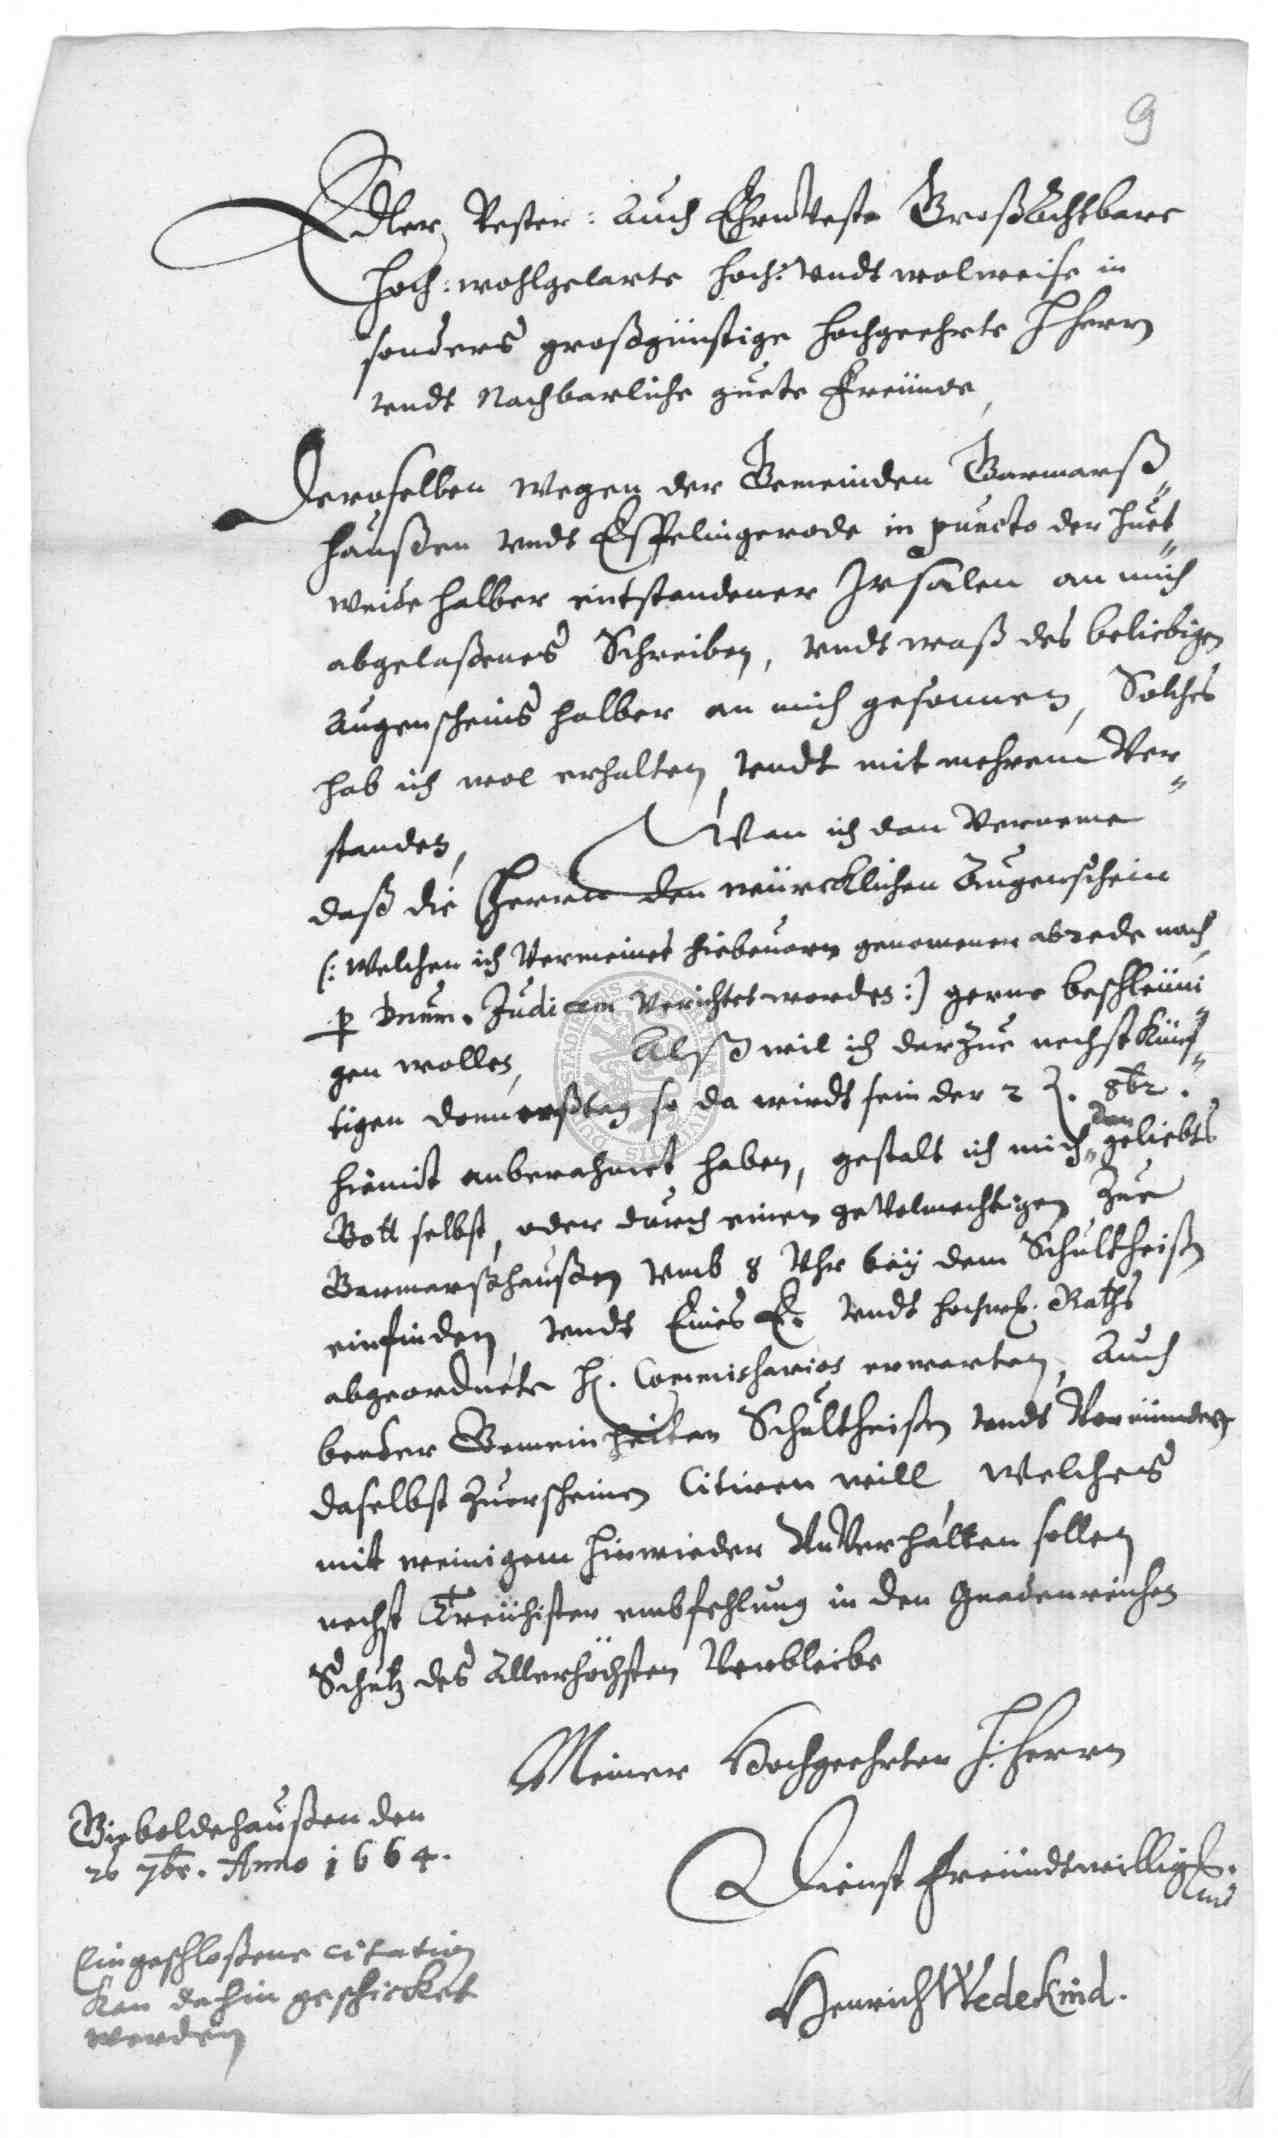 9
Edler, Vester: auch Ehrnveste Großachtbare
hoch: wohlgelarte hoch: vndt wolweise in
sonders großgünstige hochgeehrte H herrn
vndt Nachbarliche guete Freünde,
Deroselben wegen der Gemeinden Germarß„
haußen vndt Esplingerode in puncto der huet„
weide halber entstandener Irsalen an mich
abgelaßenes Schreiben, vndt waß des beliebigen
Augenscheins halber an mich gesonnen, Solches
hab ich wol erhalten vndt mit mehrem Ver„
standen, Wan ich dan Verneme
daß die Herren den würcklichen Augenschein
(: welchen ich Vermeinet hiebeuorn genomener abrede nach
p Dnum. Judicem Verichtet worden :) gerne beschleüni„
gen wollen, Alß wil ich darzue nechst künf„
tigen donnerßtag so da wirdt sein der 2 8br.
hiemit anberahmet haben, gestalt ich mich „dan geliebts
Gott selbst, oder durch einen geVolmechtigen zue
Germarßhaußen vmb 8 Vhr beÿ dem Schultheißen
einfinden, vndt Eines E. vndt hochw. Raths
abgeordnete H. Commissarios erwarten, Auch
beeder Gemeinheiten Schultheißen vndt Vormünder
daselbst zuerscheinen Citiren will, Welches
mit wenigem hinwieder VnVerhalten sollen
nechst Trewlister embfehlung in den Gnadenreichen
Schutz des Allerhöchsten Verbleibe
Meiner Hochgeehrten H. herrn
Gieboldehaußen den
26 7br. Anno 1664.
Dienst Freündtwillig
Henrich Wedekind.
Eingeschloßene citation
kan dahin geschicket
werden